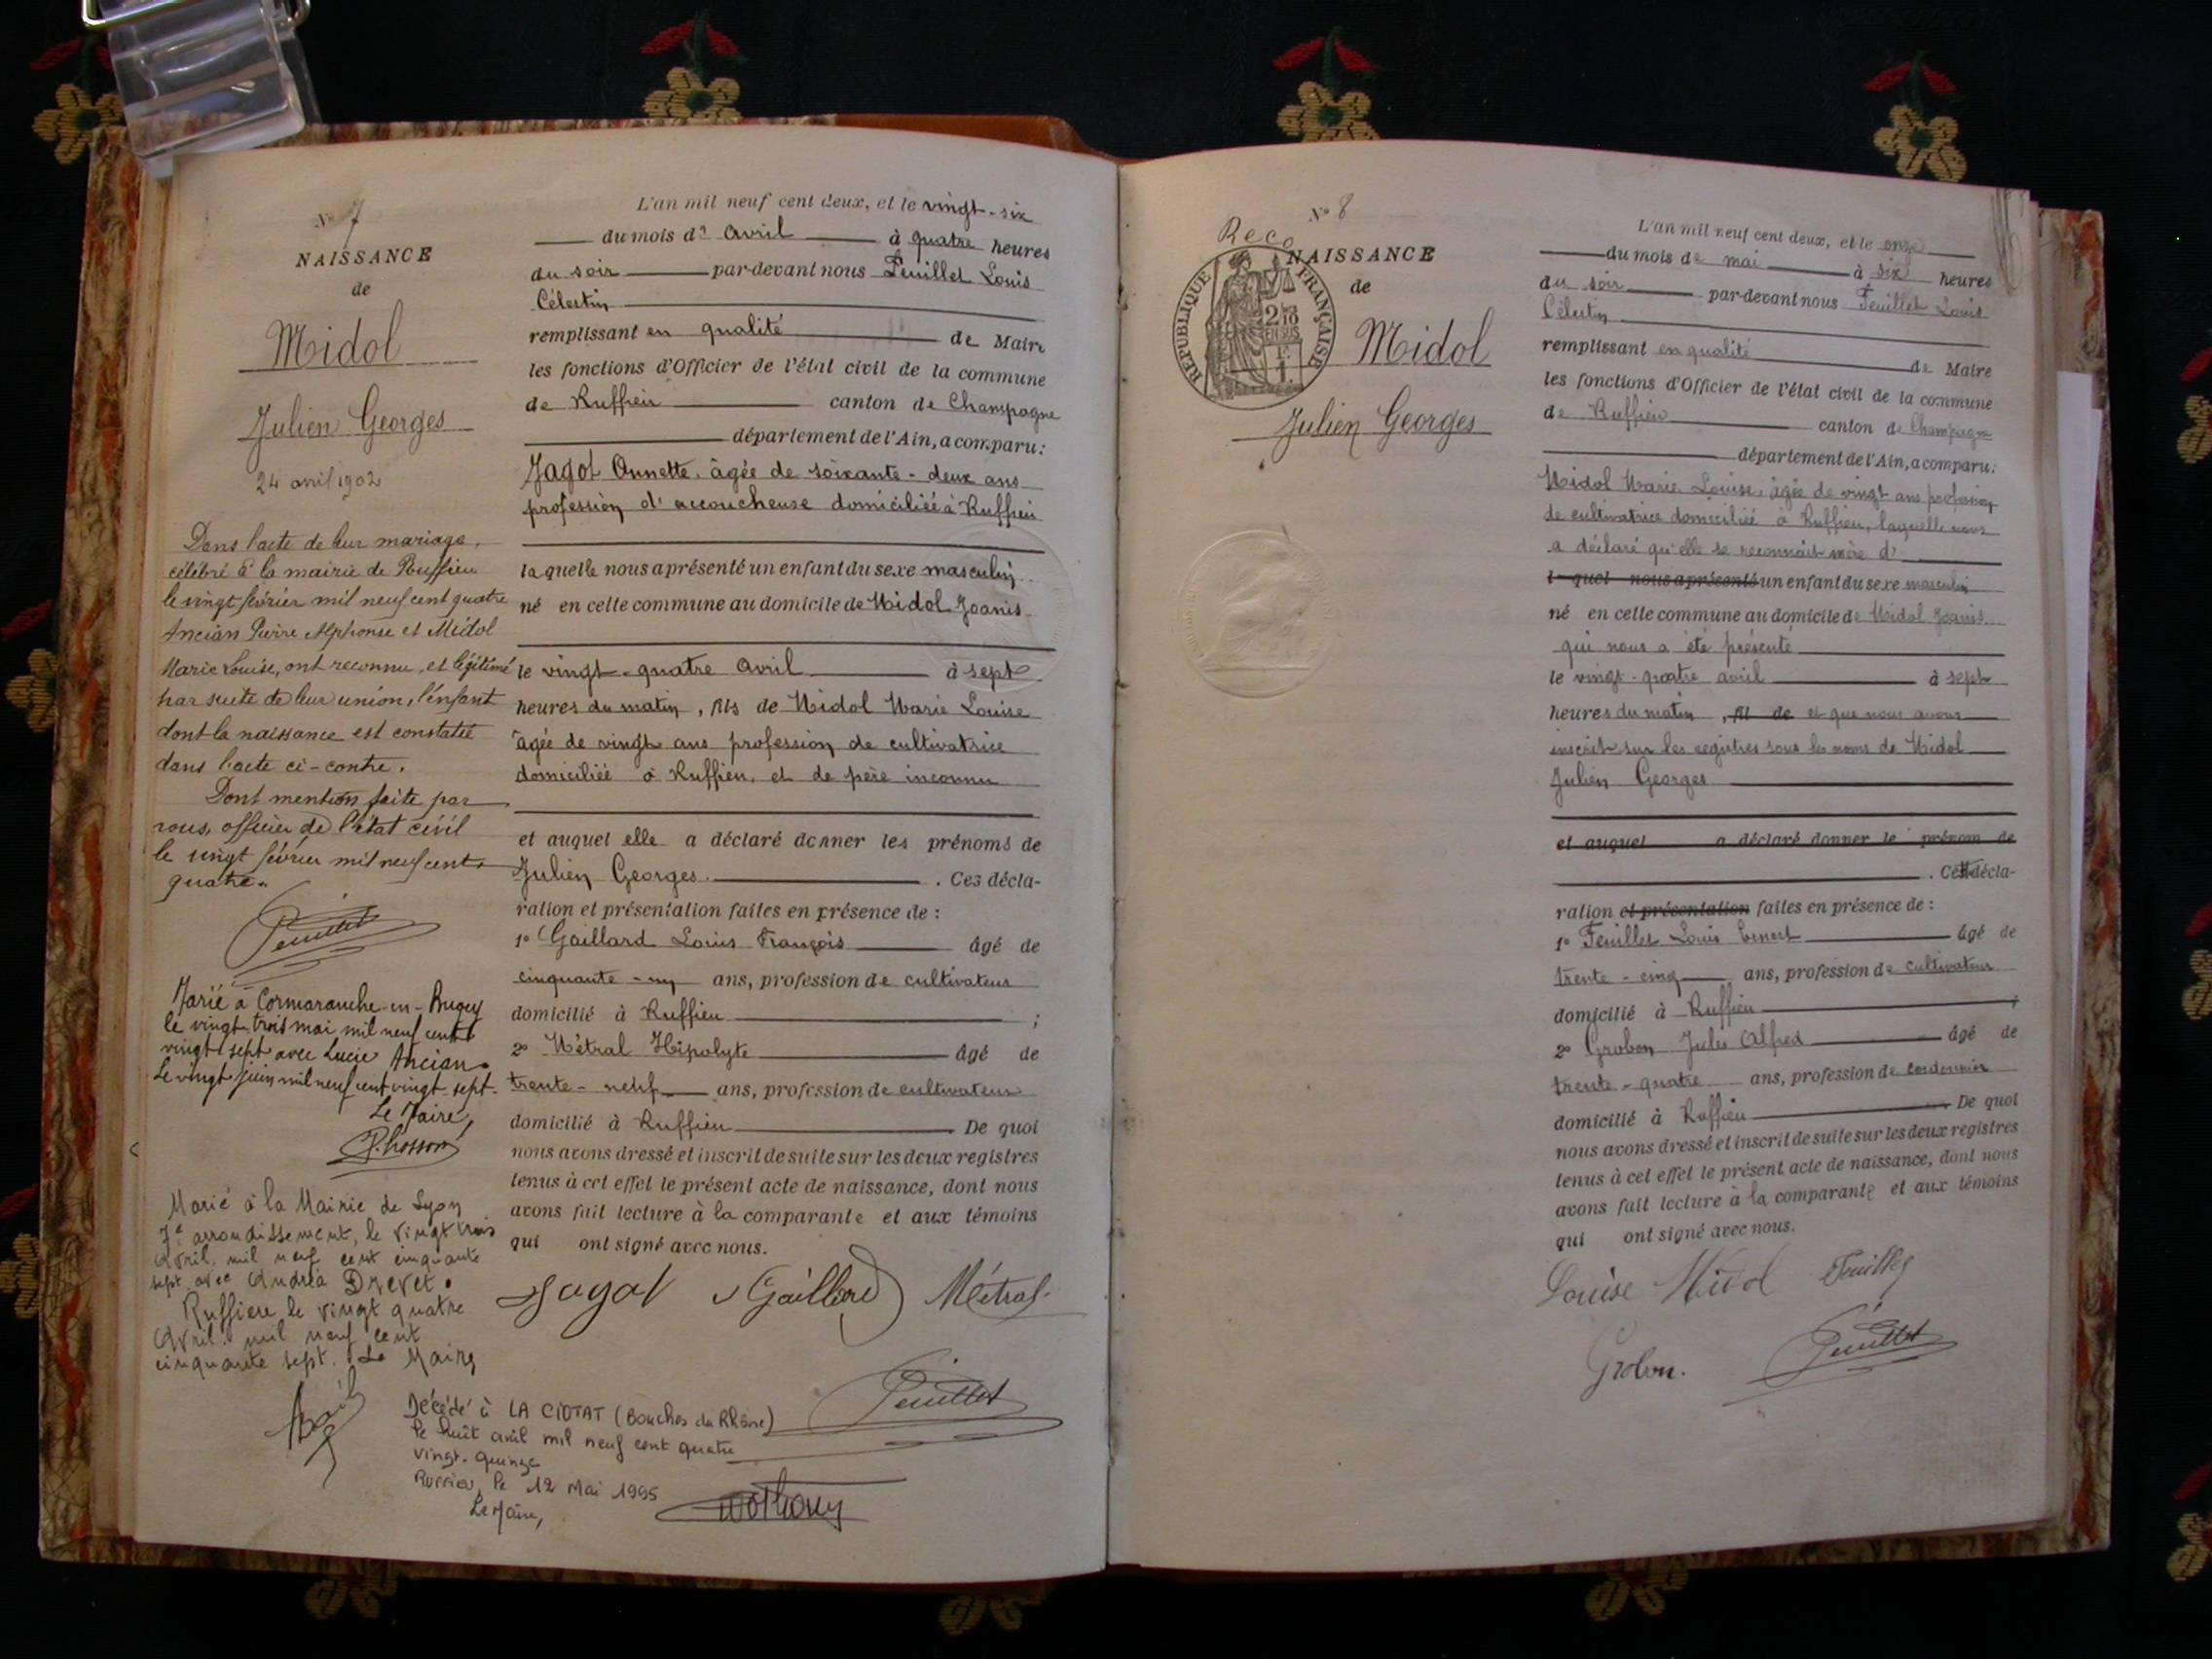 N° 7
NAISSANCE
de
Midol
Julien Georges
24 avril 1902
Dans l'acte de leur mariage,
célébré à la mairie de Ruffieu
le vingt février mil neuf cent quatre
Ancian Pierre Alphonse et Midol
Marie Louise, ont reconnu, et légitimé
par suite de leur union, l'enfant
dont la naissance est constatée
dans l'acte ci-contre.
Dont mention faite par
nous, officier de l'état civil
le vingt février mil neuf cent
quatre.
Feuillet
Marié à Cormaranche-en-Bugey
le vingt trois mai mil neuf cent
vingt sept avec Lucie Ancian.
Le vingt juin mil neuf cent vingt sept.
Le Maire,
Marié à la Mairie de Lyon
7e arrondissement, le vingt trois
Avril mil neuf cent cinquante
sept avec Andréa Drevet.
Ruffieu le vingt quatre
Avril mil neuf cent
cinquante sept. Le Maire
L'an mil neuf cent deux, et le vingt-six
du mois de Avril à quatre heures
du soir par-devant nous Feuillet Louis
Célestin
remplissant en qualité de Maire
les fonctions d'Officier de l'état civil de la commune
de Ruffieu canton de Champagne
département de l'Ain, a comparu:
Jagot Annette, âgée de soixante-deux ans
profession d'accoucheuse domiciliée à Ruffieu
laquelle nous a présenté un enfant du sexe masculin
né en cette commune au domicile de Midol Joanis
le vingt-quatre Avril à sept
heures du matin, fils de Midol Marie Louise
âgée de vingt ans profession de cultivatrice
domiciliée à Ruffieu, et de père inconnu
et auquel elle a déclaré donner les prénoms de
Julien Georges. Ces décla-
ration et présentation faites en présence de :
1° Gaillard Louis François âgé de
cinquante-un ans, profession de cultivateur
domicilié à Ruffieu ;
2° Métral Hipolyte âgé de
trente-neuf ans, profession de cultivateur
domicilié à Ruffieu De quoi
nous avons dressé et inscrit de suite sur les deux registres
tenus à cet effet le présent acte de naissance, dont nous
avons fait lecture à la comparante et aux témoins
qui ont signé avec nous.
Jagot Gaillard Métral
Feuillet
Décédé à LA CIOTAT (Bouches du Rhône)
le huit avril mil neuf cent quatre
vingt. quinze
Ruffieu, le 12 Mai 1995
Le Maire,
N° 8
Reco
NAISSANCE
de
RÉPUBLIQUE FRANÇAISE
2/10
EN SUS
Midol
Julien Georges
L'an mil neuf cent deux, et le onze
du mois de mai à six heures
du soir par-devant nous Feuillet Louis
Célestin
remplissant en qualité de Maire
les fonctions d'Officier de l'état civil de la commune
de Ruffieu canton de Champagne
département de l'Ain, a comparu:
Midol Marie Louise, âgée de vingt ans profession
de cultivatrice domiciliée à Ruffieu, laquelle nous
a déclaré qu'elle se reconnaît mère d'
l quel nous a présenté un enfant du sexe masculin
né en cette commune au domicile de Midol Joanis
qui nous a été présenté
le vingt-quatre avril à sept
heures du matin, fil de et que nous avons
inscrit sur les registres sous les noms de Midol
Julien Georges
et auquel a déclaré donner le prénom de
. Cette décla-
ration et présentation faites en présence de :
1° Feuillet Louis Ernest âgé de
trente-cinq ans, profession de cultivateur
domicilié à Ruffieu ;
2° Grobon Jules Alfred âgé de
trente-quatre ans, profession de cordonnier
domicilié à Ruffieu De quoi
nous avons dressé et inscrit de suite sur les deux registres
tenus à cet effet le présent acte de naissance, dont nous
avons fait lecture à la comparante et aux témoins
qui ont signé avec nous.
Louise Midol Feuillet
Grobon. Feuillet